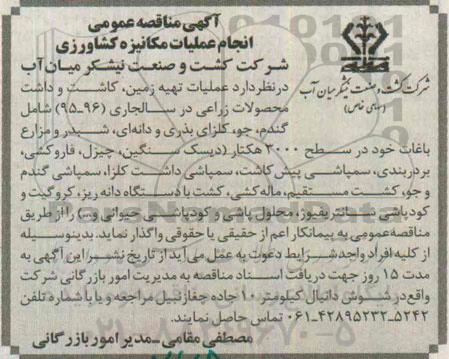 آگهی مناقصه عمومی
انجام عملیات مکانیزه کشاورزی
شرکت کشت و صنعت نیشکر میان‌آب
شرکت کشت و صنعت نیشکر میان آب
(سهامی خاص)
در نظر دارد عملیات تهیه زمین، کاشت و داشت
محصولات زراعی در سالجاری (۹۶-۹۵) شامل
گندم، جو، کلزای بذری و دانه‌ای، شبدر و مزارع
باغات خود در سطح ۳۰۰۰ هکتار (دیسک سنگین، چیزل، فاروکشی،
بردربندی، سمپاشی پیش کاشت، سمپاشی داشت کلزا، سمپاشی گندم
و جو، کشت مستقیم، ماله کشی، کشت با دستگاه دانه ریز، کروگیت و
کودپاشی سانتریفیوژ، محلول پاشی و کودپاشی حیوانی و...) را از طریق
مناقصه عمومی به پیمانکار اعم از حقیقی یا حقوقی واگذار نماید. بدینوسیله
از کلیه افراد واجد شرایط دعوت به عمل می‌آید از تاریخ نشر این آگهی به
مدت ۱۵ روز جهت دریافت اسناد مناقصه به مدیریت امور بازرگانی شرکت
واقع در شوش دانیال کیلومتر ۱۰ جاده چغازنبیل مراجعه و یا با شماره تلفن
۰۶۱-۴۲۸۹۵۲۳۲-۵۲۴۲ تماس حاصل نمایند.
مصطفی مقامی - مدیر امور بازرگانی